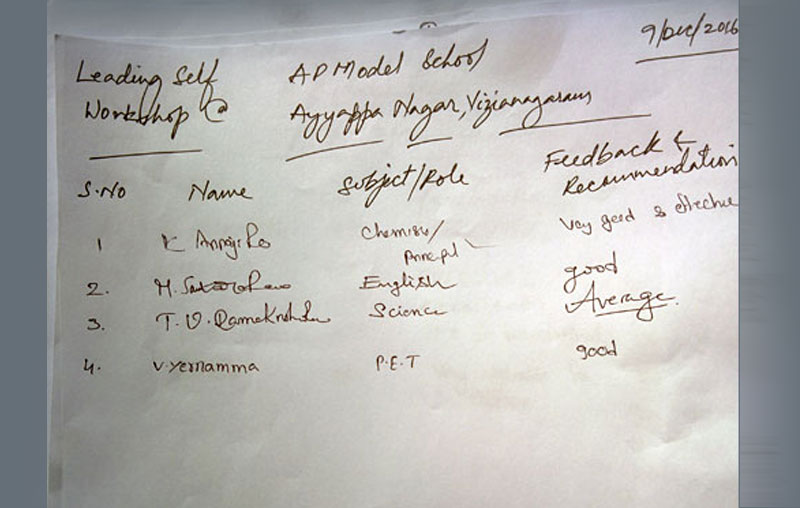 9/Dec/2016
Leading Self AP Model School
Workshop @ Ayyappa Nagar, Vizianagaram
S.No Name Subject/Role Feedback &
Recommendation
1 K Chemistry/ Very good & effective
Principal
2. M. English good
3. T. V. Ramakrishna Science Average.
4. V. Yernamma P.E.T good